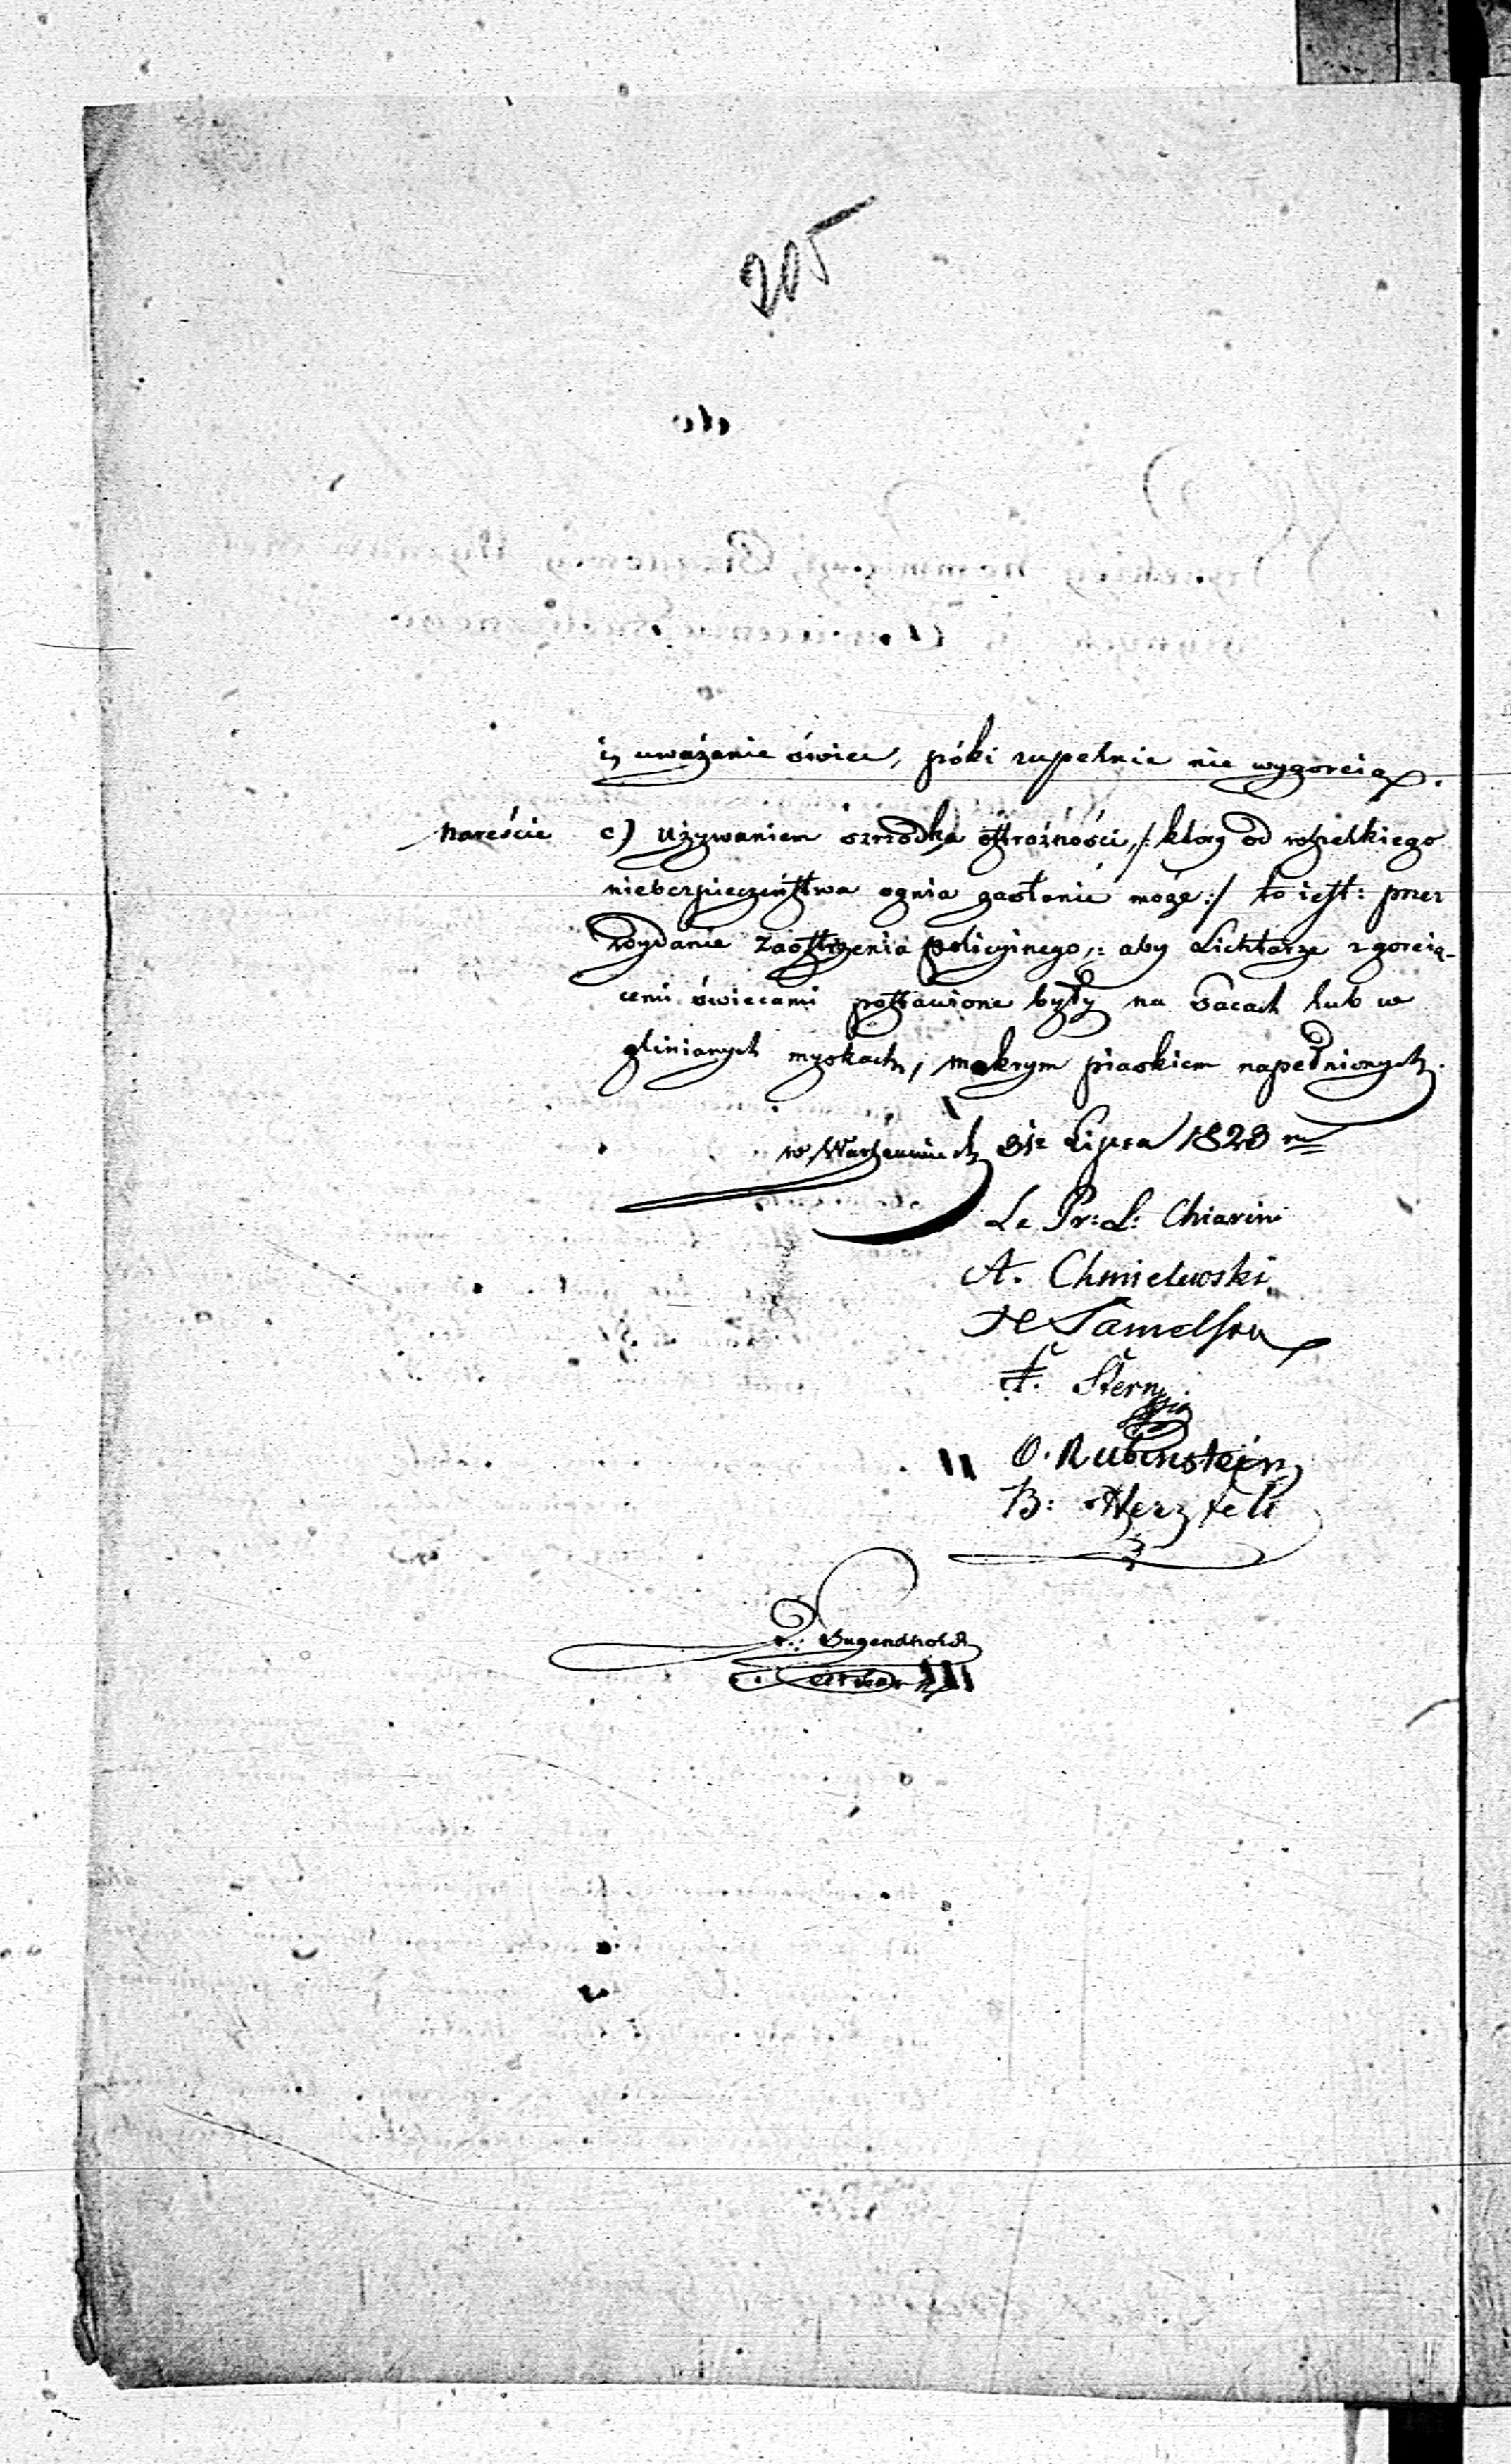 205
ią uważanie świec, póki zupełnie nie wygoreią.
nareście c) używaniem szrzodka ostrożności, /: który od wszelkiego
niebezpieczeństwa ognia zasłonić może :/ to iest: przez
wydanie zaostrzenia policyinego, : aby Lichtarze z goreią-
cemi świecami postawione były na tacach lub w
glinianych myskach, mokrym piaskiem napełnionych.
w Warszawie d. 31 Lipca 1828 r.
Le Pr: L: Chiarini
A. Chmielewski
Samelson
Stern
O. Rubinstein
B: Herzfeld
Tugendhold